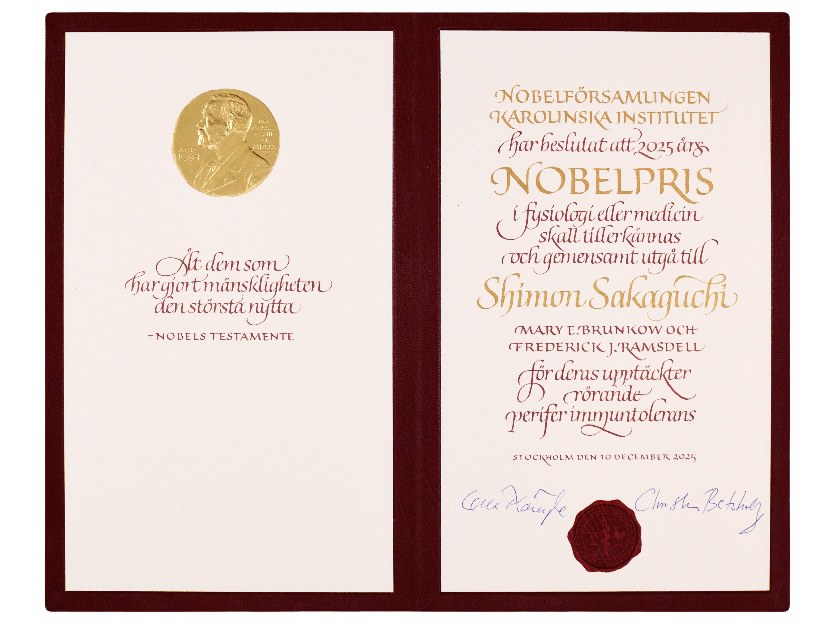 Åt dem som
har gjort mänskligheten
den största nytta
–NOBELS TESTAMENTE
NOBELFÖRSAMLINGEN
KAROLINSKA INSTITUTET
har beslutat att 2025 års
NOBELPRIS
i fysiologi eller medicin
skall tillerkännas
och gemensamt utgå till
Shimon Sakaguchi
MARY E. BRUNKOW OCH
FREDERICK J. RAMSDELL
för deras upptäckter
rörande
perifer immuntolerans
STOCKHOLM DEN 10 DECEMBER 2025